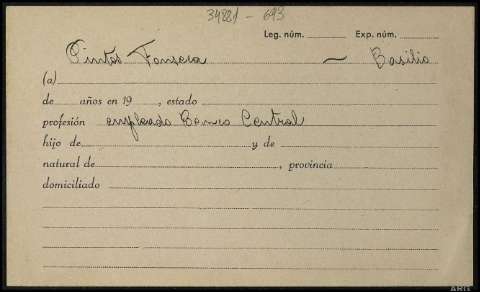 34881 - 693
Leg. núm. Exp. núm.
Pintos Fonseca — Basilio
(a)
de años en 19 , estado
profesión empleado Banco Central
hijo de y de
natural de , provincia
domiciliado